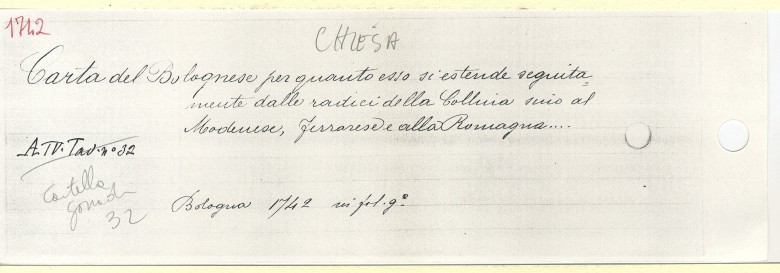 1742
CHIESA
Carta del Bolognese per quanto esso si estende seguita=
mente dalle radici della Collina sino al
Modenese, Ferrarese e alla Romagna....
A.IV. Tav. n° 32
Cartella
32
Bologna 1742 in fol. g°